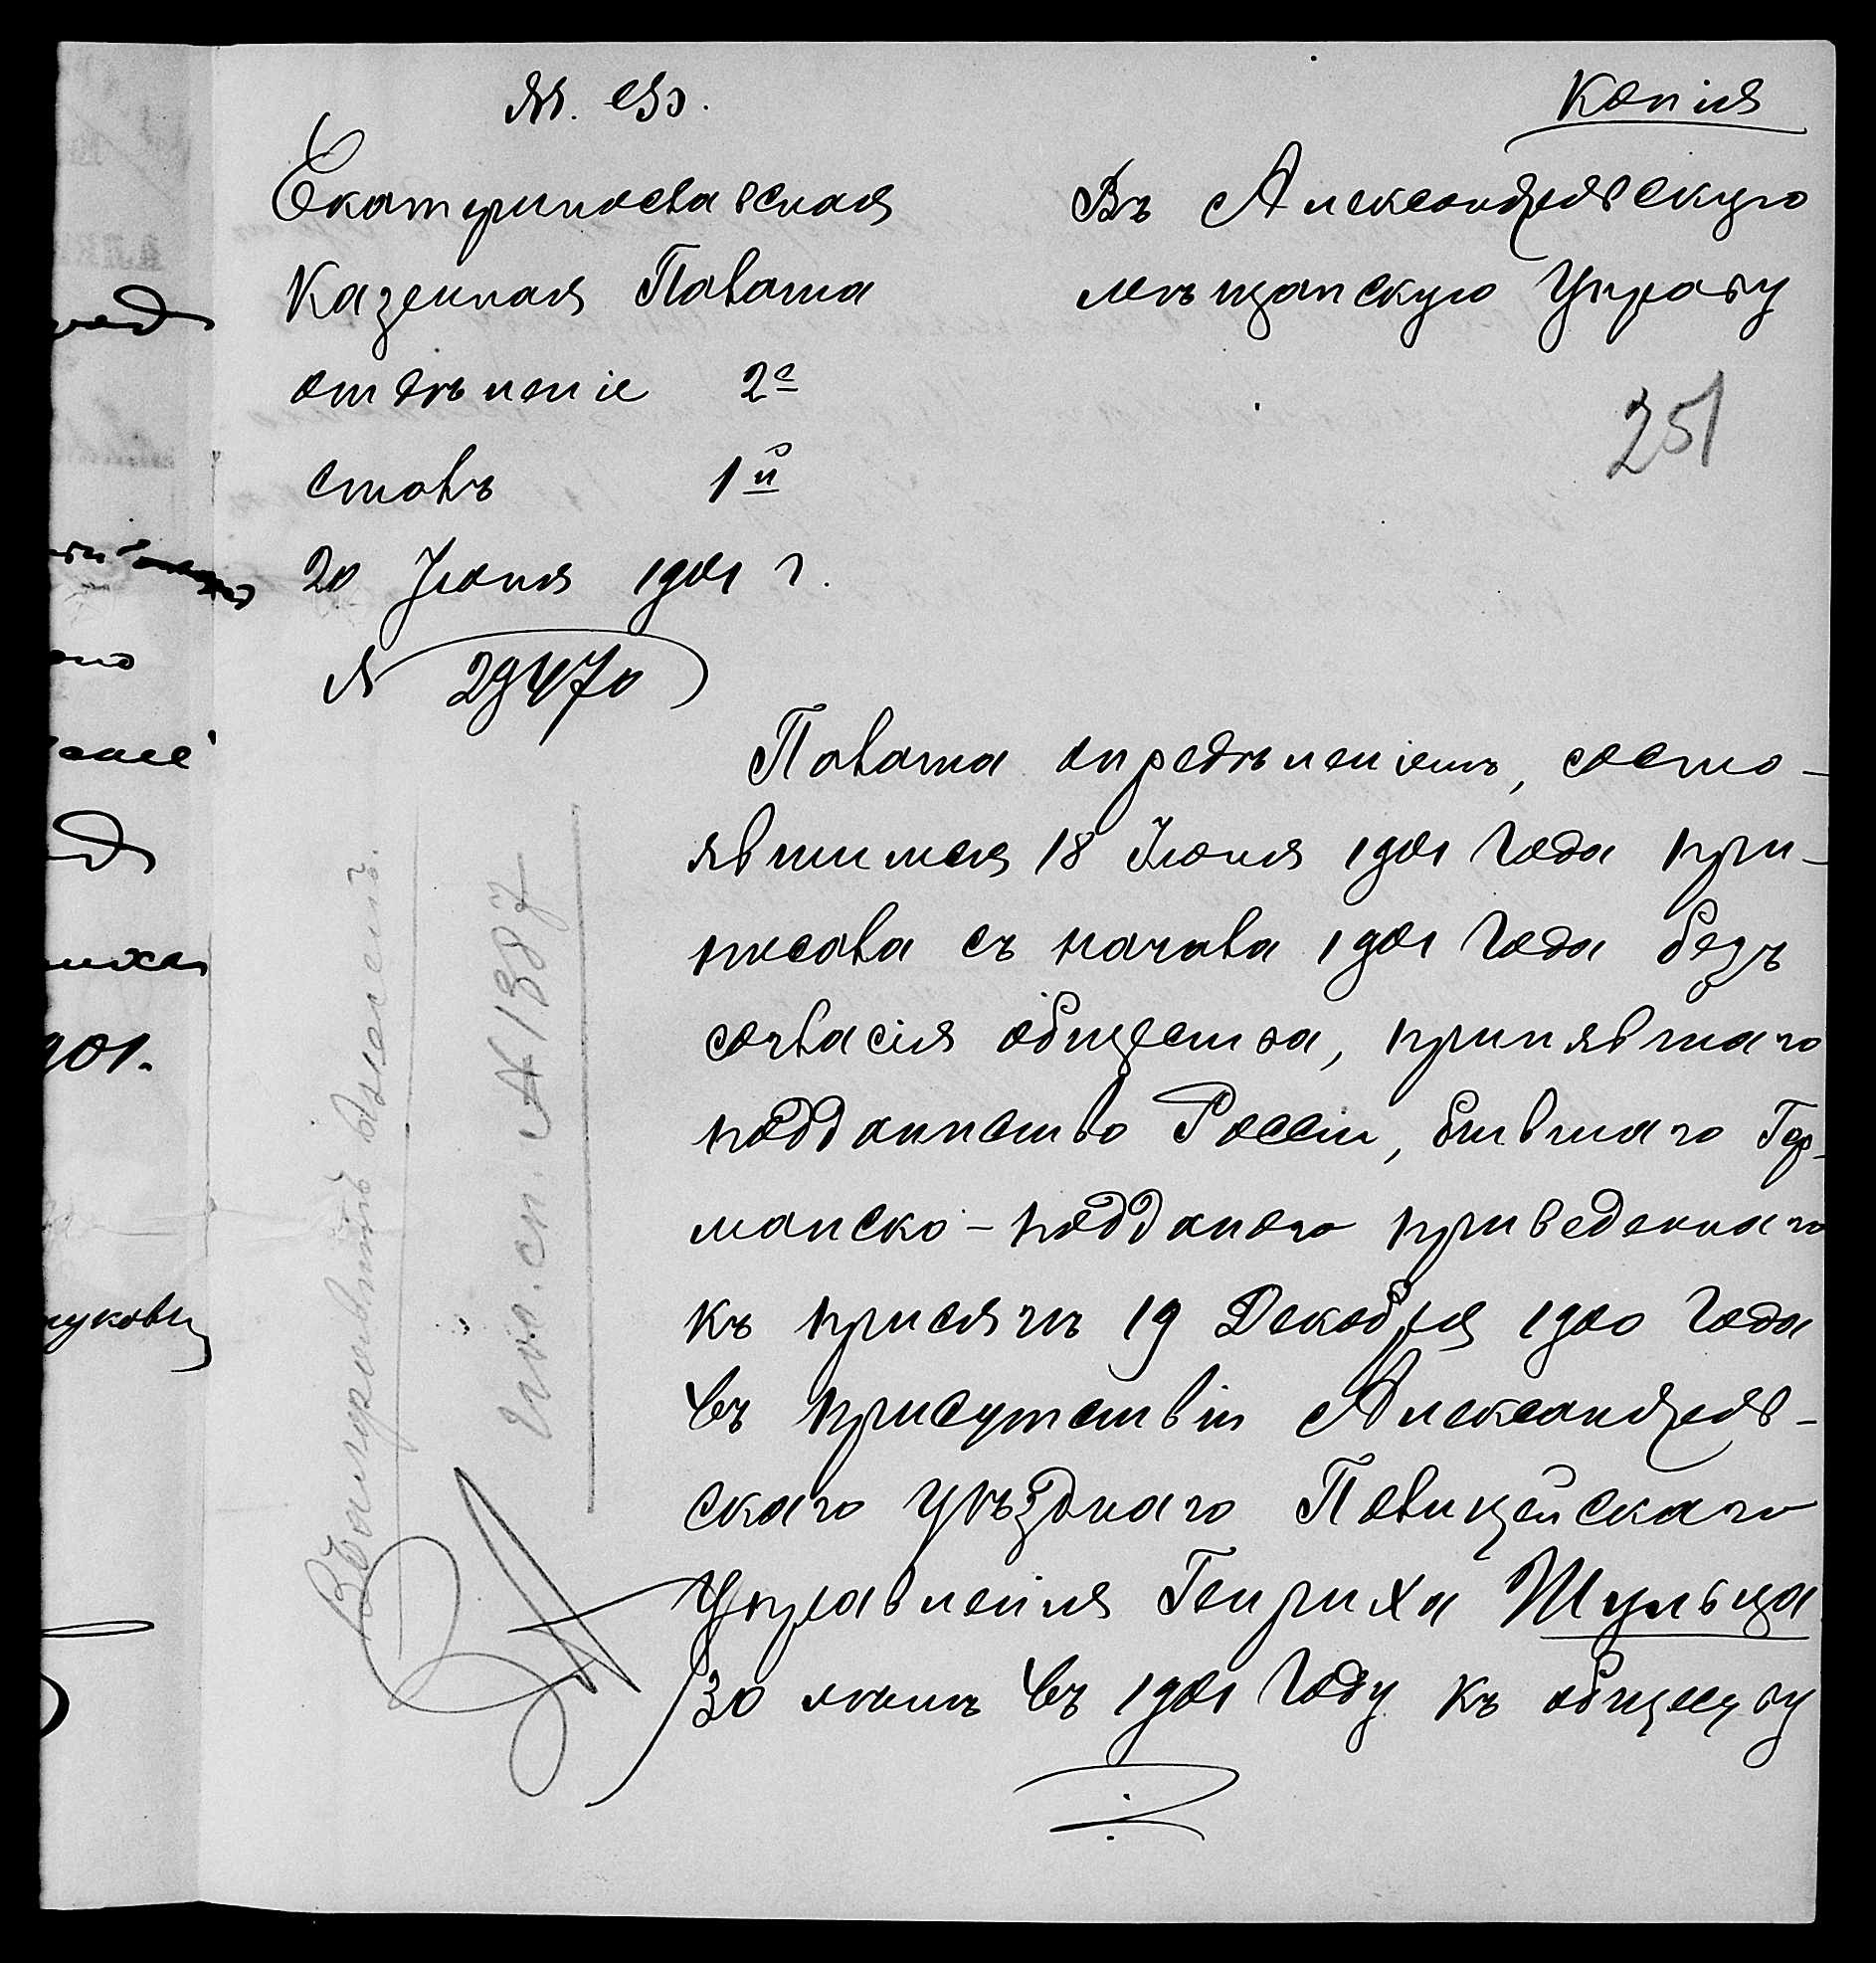 М. Ф.
Копія
Екатеринославская
Казенная Палата
отдѣленіе 2е
столъ 1й
20 Іюня 1901 г.
№ 29470
Въ Александровскую
мѣщанскую Управу
251
Палата опредѣленіемъ, состо-
явшимся 18 Іюня 1901 года при-
писала съ начала 1901 года безъ
согласія общества, принявшаго
подданство Россіи, бывшаго Гер-
манско-подданого приведеннаго
къ присягѣ 19 Декабря 1900 года
въ присутствіи Александров-
скаго уѣзднаго Полицейскаго
Управленія Генриха Шульца
30 лѣтъ въ 1901 году къ обществу
№ 1387
901.